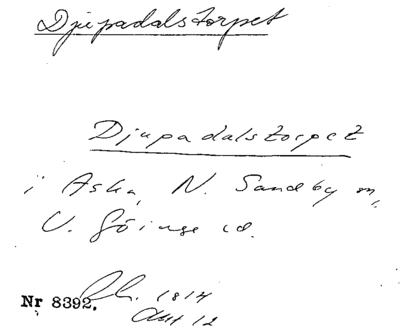 Djupadalstorpet
Djupadalstorpet
i Aska, N. Sandby sn,
V. Göinge hd.
Nr 8392. 1814
Akt 12